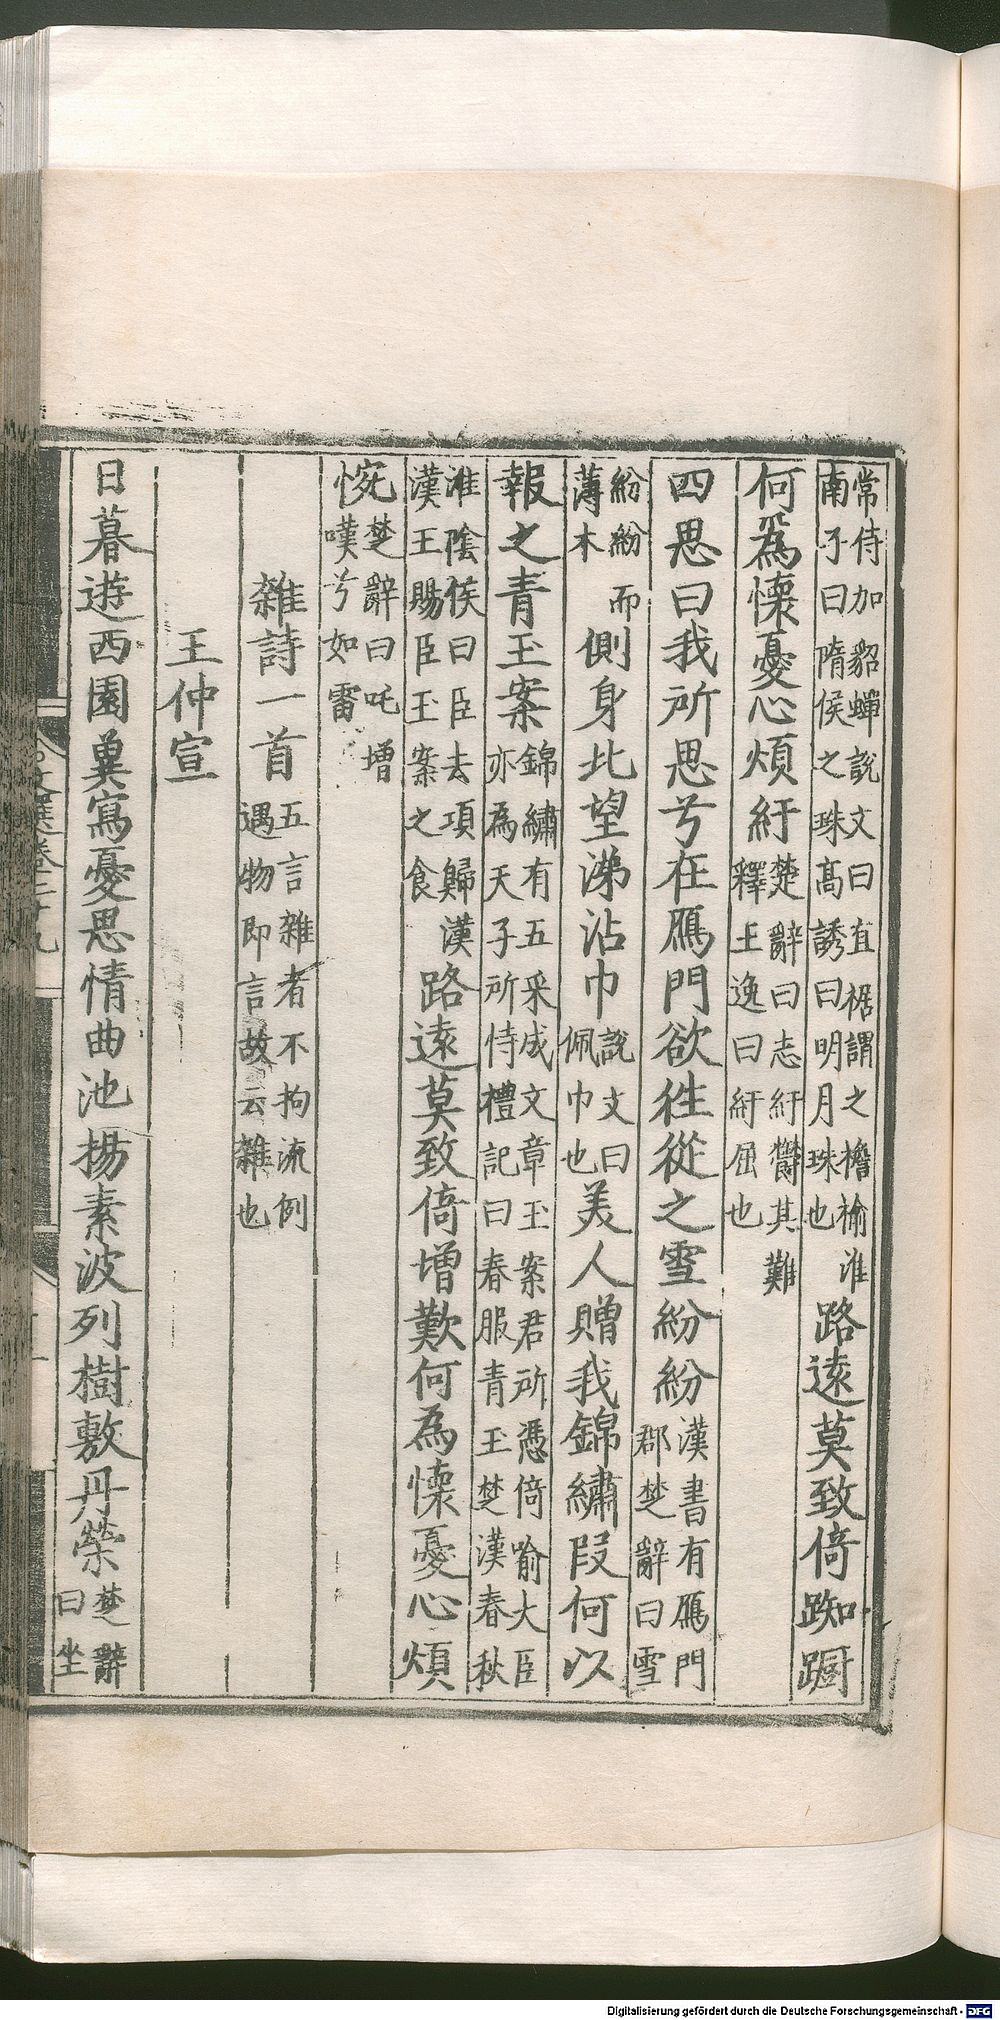 常侍加貂蟬說文曰直裾謂之襜褕淮
南子曰隋侯之珠高誘曰明月珠也
路遠莫致倚踟蹰
何為懷憂心煩紆
楚辭曰志紆鬱其難
釋王逸曰紆屈也
四思曰我所思兮在鴈門欲往從之雪紛紛
漢書有鴈門
郡楚辭曰雪
紛紛而
薄木
側身北望涕沾巾
說文曰
佩巾也
美人贈我錦繡段何以
報之青玉案
錦繡有五采成文章玉案君所憑倚喻大臣
亦為天子所恃禮記曰春服青玉楚漢春秋
淮陰侯曰臣去項歸漢
漢王賜臣玉案之食
路遠莫致倚增歎何為懷憂心煩
惋
楚辭曰吒增
嘆兮如雷
雜詩一首
五言雜者不拘流例
遇物即言故云雜也
王仲宣
日暮遊西園兾寫憂思情曲池揚素波列樹敷丹榮
楚辭
曰坐
文選卷二十九
Digitalisierung gefördert durch die Deutsche Forschungsgemeinschaft - DFG